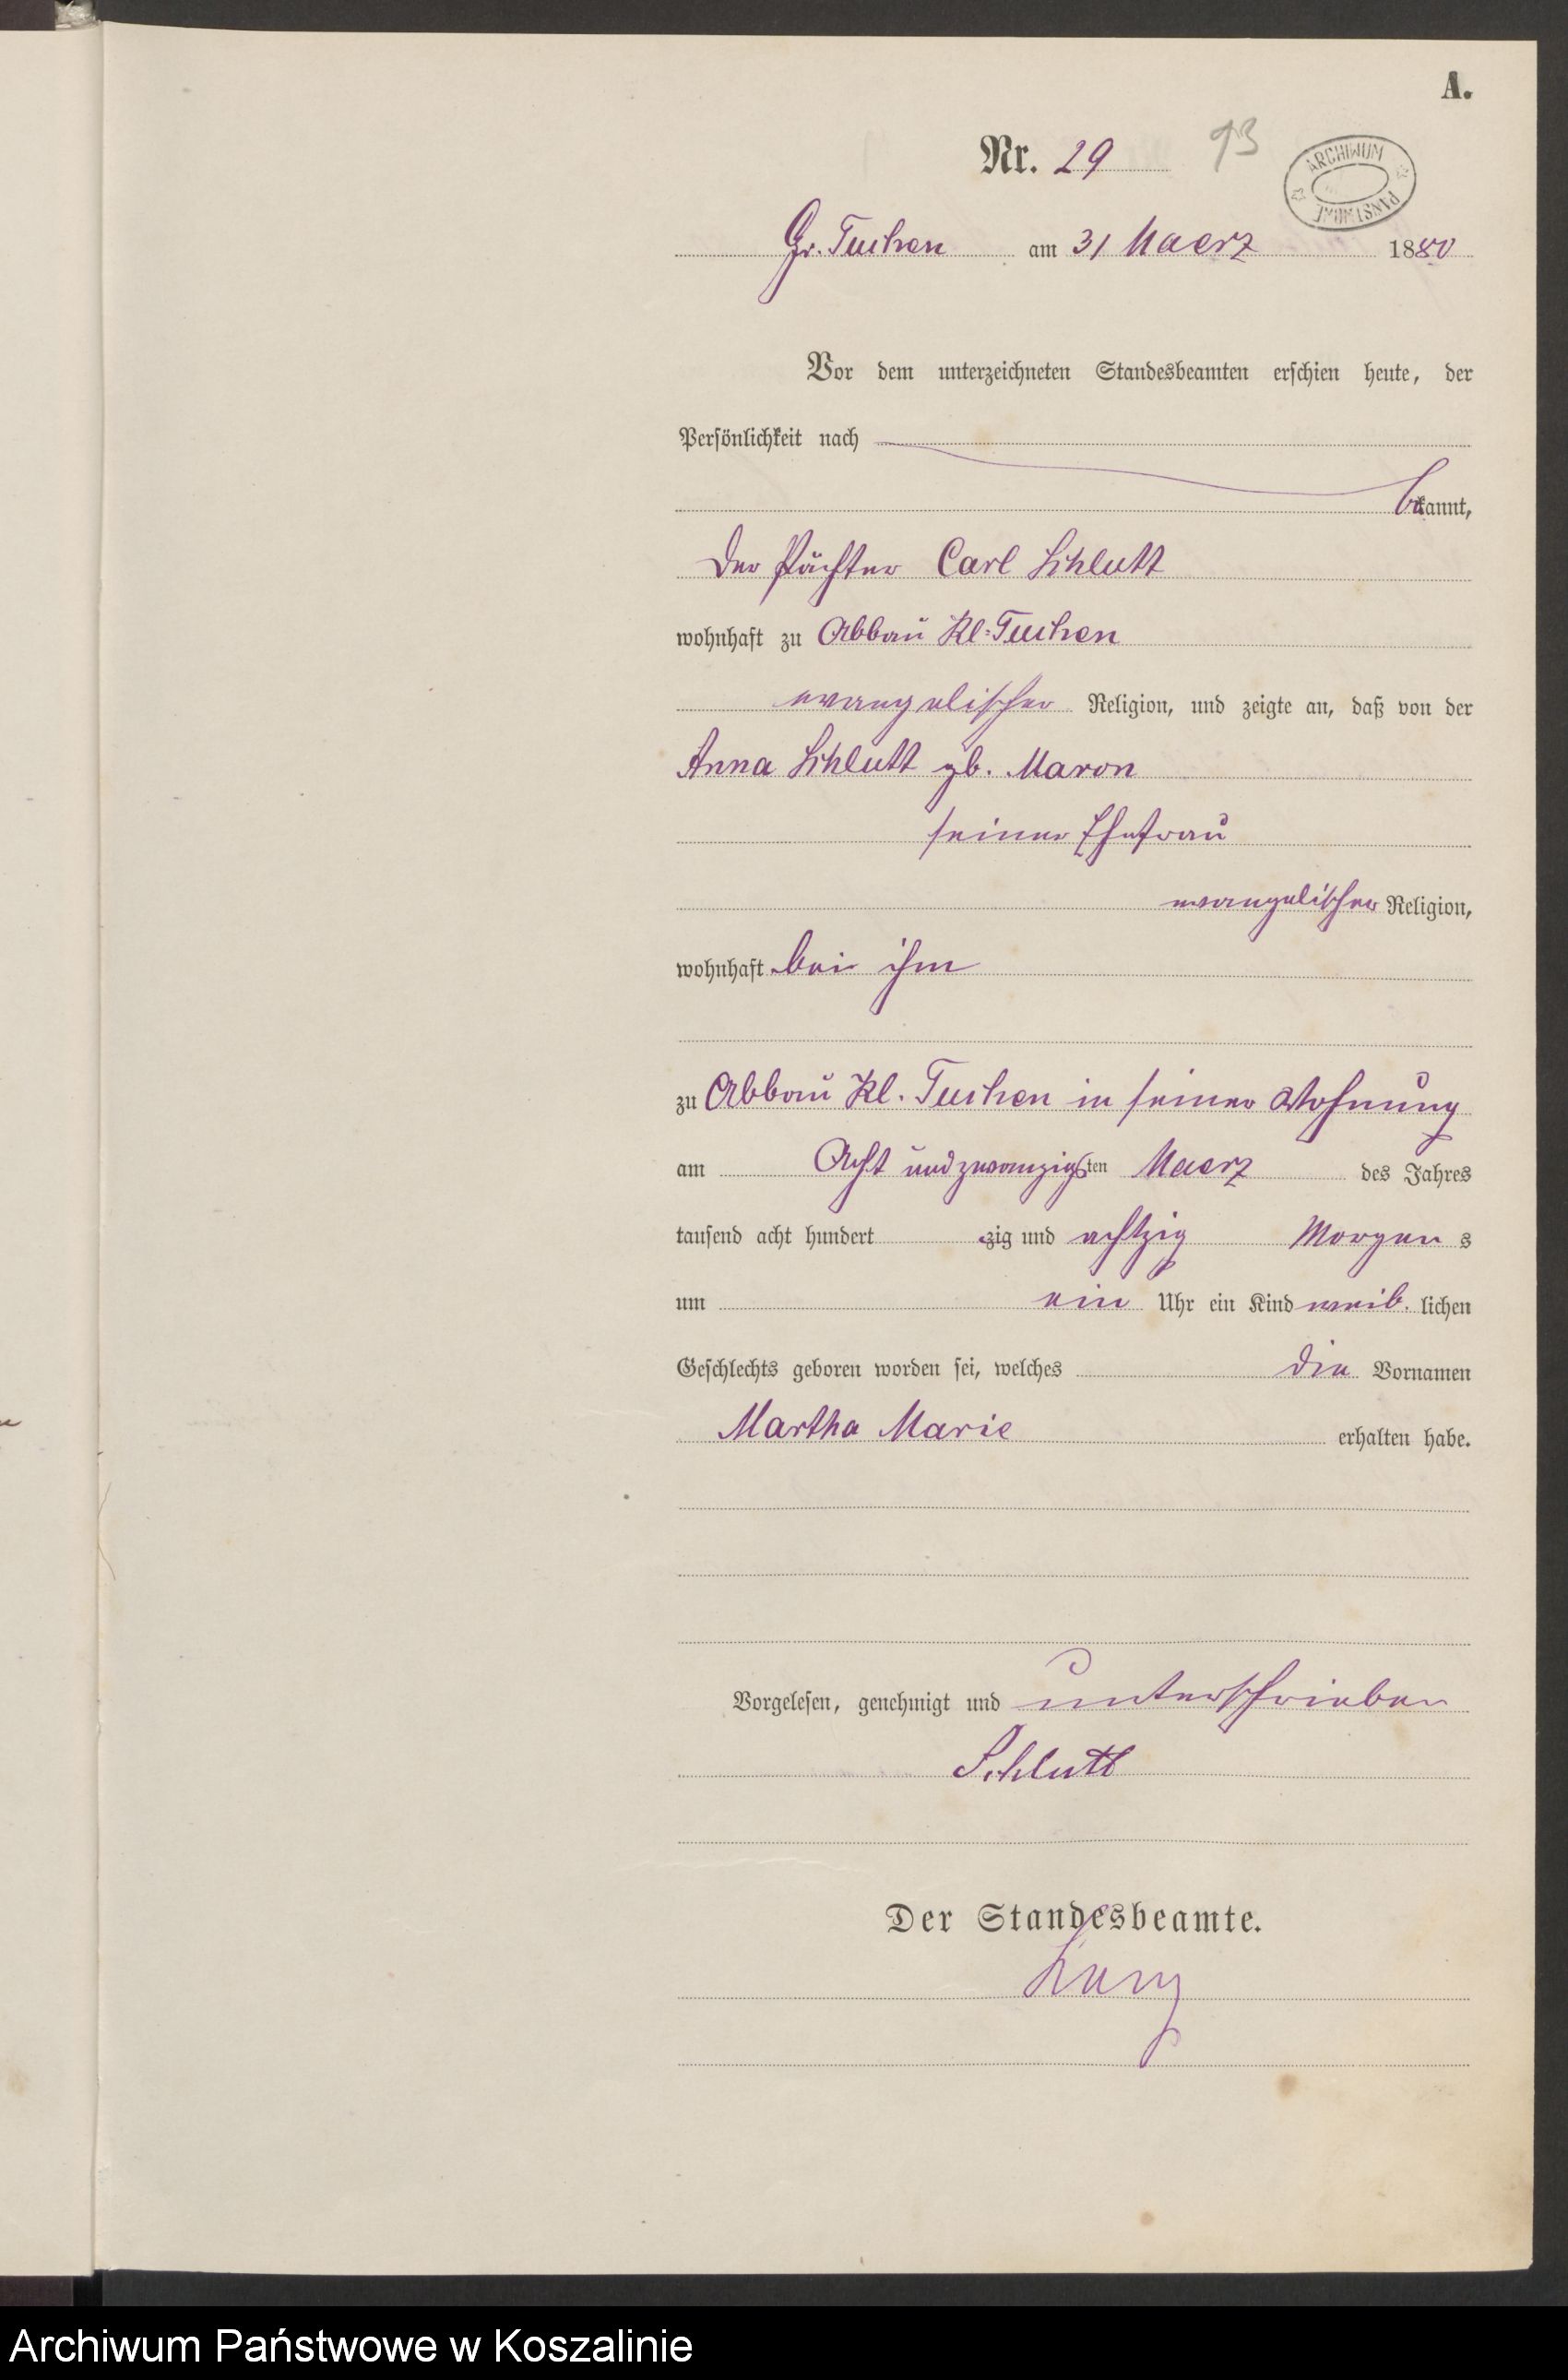 A.
Nr. 29 93
ARCHIWUM PAŃSTWOWE
Gr. Tuchen am 31 Maerz 1880
Vor dem unterzeichneten Standesbeamten erschien heute, der
Persönlichkeit nach
bekannt,
der Pächter Carl Schlutt
wohnhaft zu Abbau Kl. Tuchen
evangelischer Religion, und zeigte an, daß von der
Anna Schlutt geb. Maron
seiner Ehefrau
evangelischer Religion,
wohnhaft bei ihm
zu Abbau Kl. Tuchen in seiner Wohnung
am Acht und zwanzigsten Maerz des Jahres
tausend acht hundert zig und achtzig Morgens
um ein Uhr ein Kind weib. lichen
Geschlechts geboren worden sei, welches die Vornamen
Martha Marie erhalten habe.
Vorgelesen, genehmigt und unterschrieben
Schlutt
Der Standesbeamte.
Archiwum Państwowe w Koszalinie